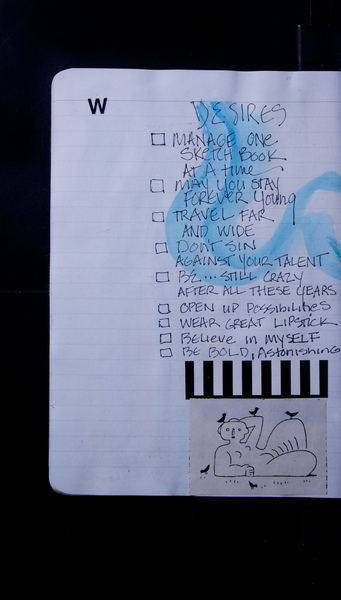 W
DESIRES
MANAGE ONE
SKETCH BOOK
AT A time
MAY YOU STAY
FOREVER Young
TRAVEL FAR
AND WIDE
DON'T SIN
AGAINST YOUR TALENT
BE... STILL CRAZY
AFTER ALL THESE YEARS
OPEN UP POSSIBILITIES
WEAR GREAT LIPSTICK
Believe in MYSELF
BE BOLD, Astonishing